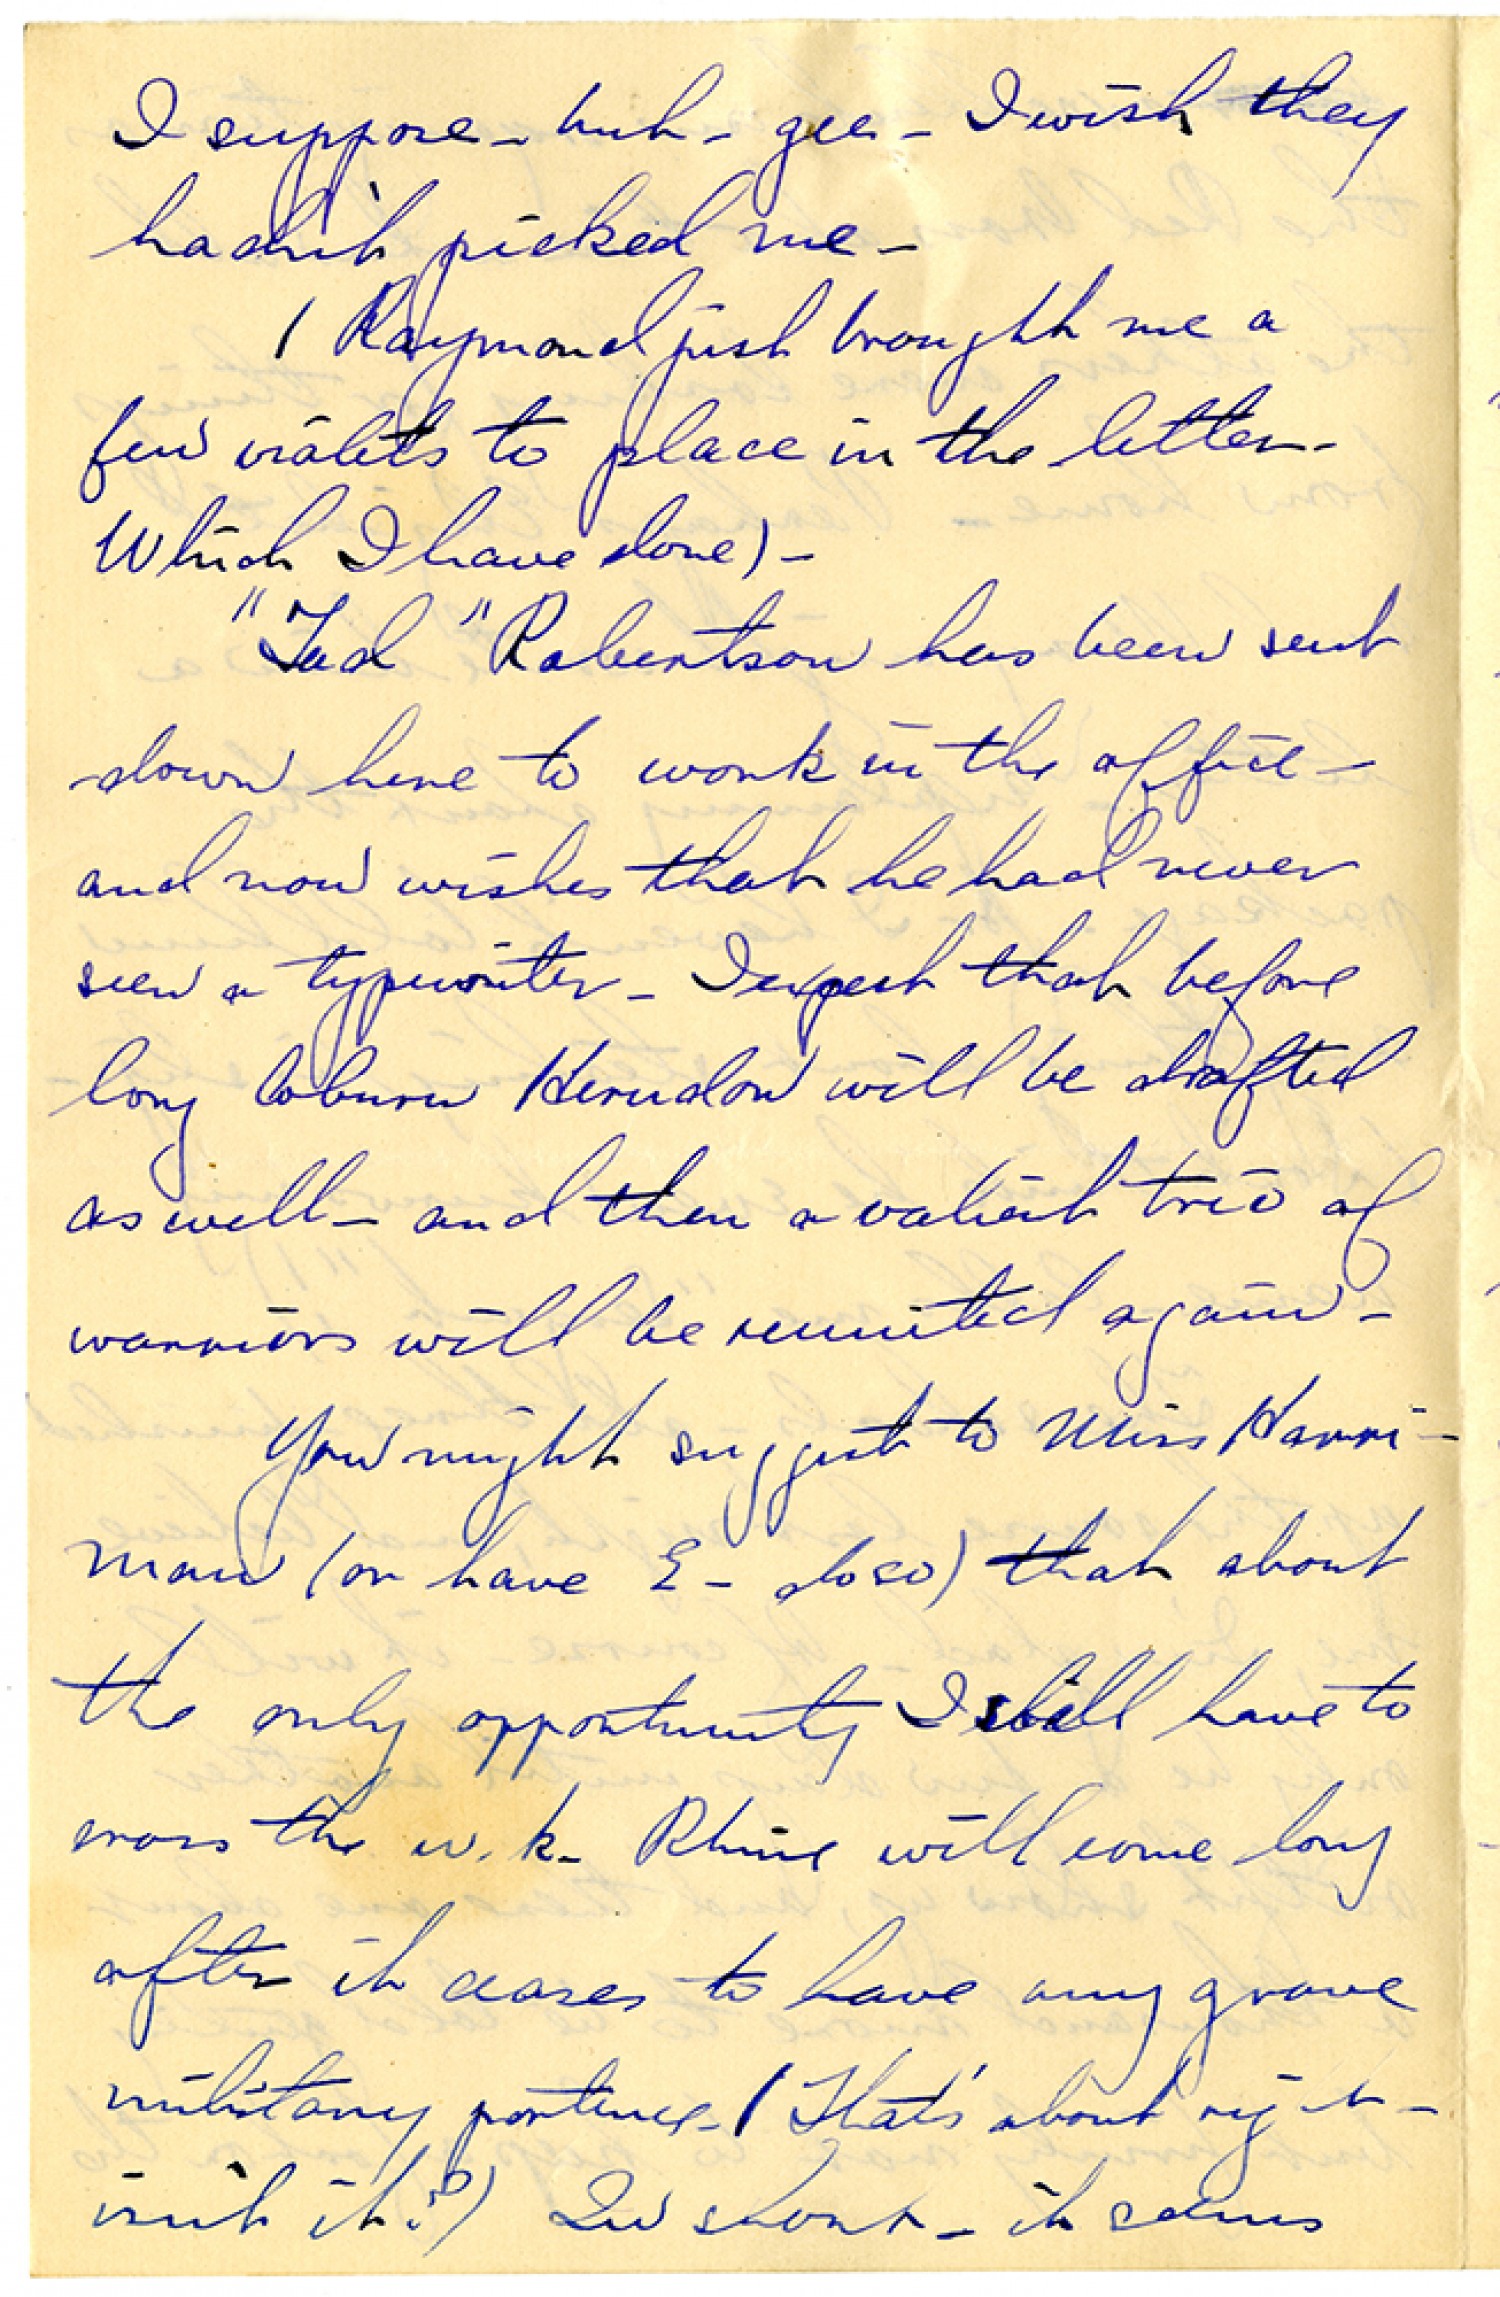 I suppose - but - gee - I wish they
hadn't picked me -
( Raymond just brought me a
few violets to place in the letter -
Which I have done) -
"Tad" Robertson has been sent
down here to work in the office -
and now wishes that he had never
seen a typewriter - I expect that before
long Coburn Herndon will be drafted
as well - and then a valient trio of
warriors will be reunited again -
You might suggest to Miss Harri-
man (or have E - do so) that about
the only opportunity I still have to
cross the w. k. Rhine will come long
after it ceases to have any grave
military portence - ( That's about right -
isn't it?) In short - it seems